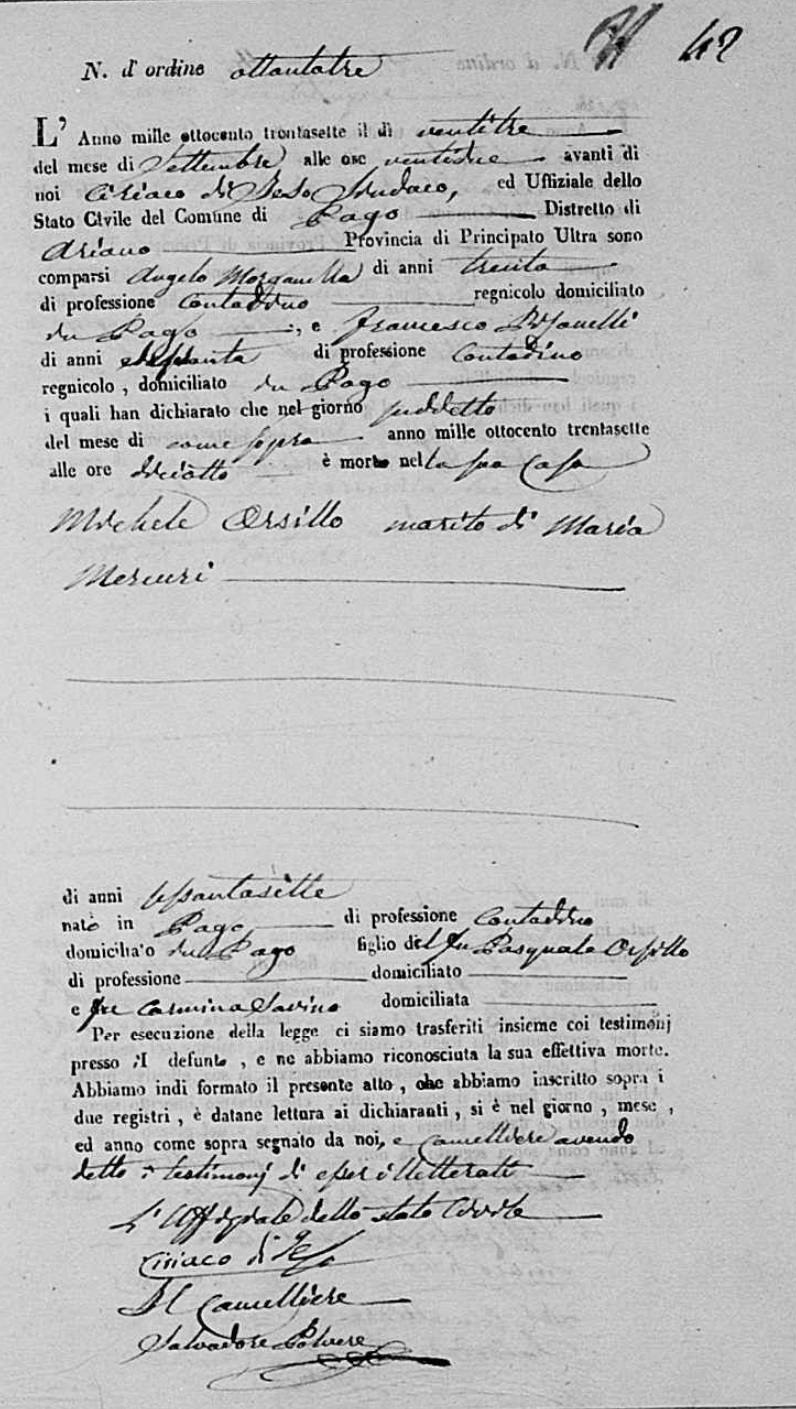 42
N. d'ordine ottantatre
L'Anno mille ottocento trentasette il dì ventitre
del mese di Settembre alle ore ventidue avanti di
noi Ciriaco di Geso Sindaco, ed Uffiziale dello
Stato Civile del Comune di Pago Distretto di
Ariano Provincia di Principato Ultra sono
comparsi Angelo Morganella di anni trenta
di professione Contadino regnicolo domiciliato
in Pago , e Francesco
di anni sessanta di professione Contadino
regnicolo , domiciliato in Pago
i quali han dichiarato che nel giorno suddetto
del mese di come sopra anno mille ottocento trentasette
alle ore dieciotto è morto nella sua casa
Michele Orsillo marito di Maria
Mercuri
di anni sessantasette
nato in Pago di professione Contadino
domicilia'o in Pago figlio del fu Pasquale Orsillo
di professione domiciliato
e fu Carmina Savino domiciliata
Per esecuzione della legge ci siamo trasferiti insieme coi testimonj
presso il defunto , e ne abbiamo riconosciuta la sua effettiva morte.
Abbiamo indi formato il presente atto , che abbiamo inscritto sopra i
due registri , è datane lettura ai dichiaranti , si è nel giorno , mese ,
ed anno come sopra segnato da noi, e Cancelliere avendo
detto i testimonj di esser illetterati
L'Uffiziale dello stato Civile
Ciriaco di Geso
Il Cancelliere
Salvadore Polvere